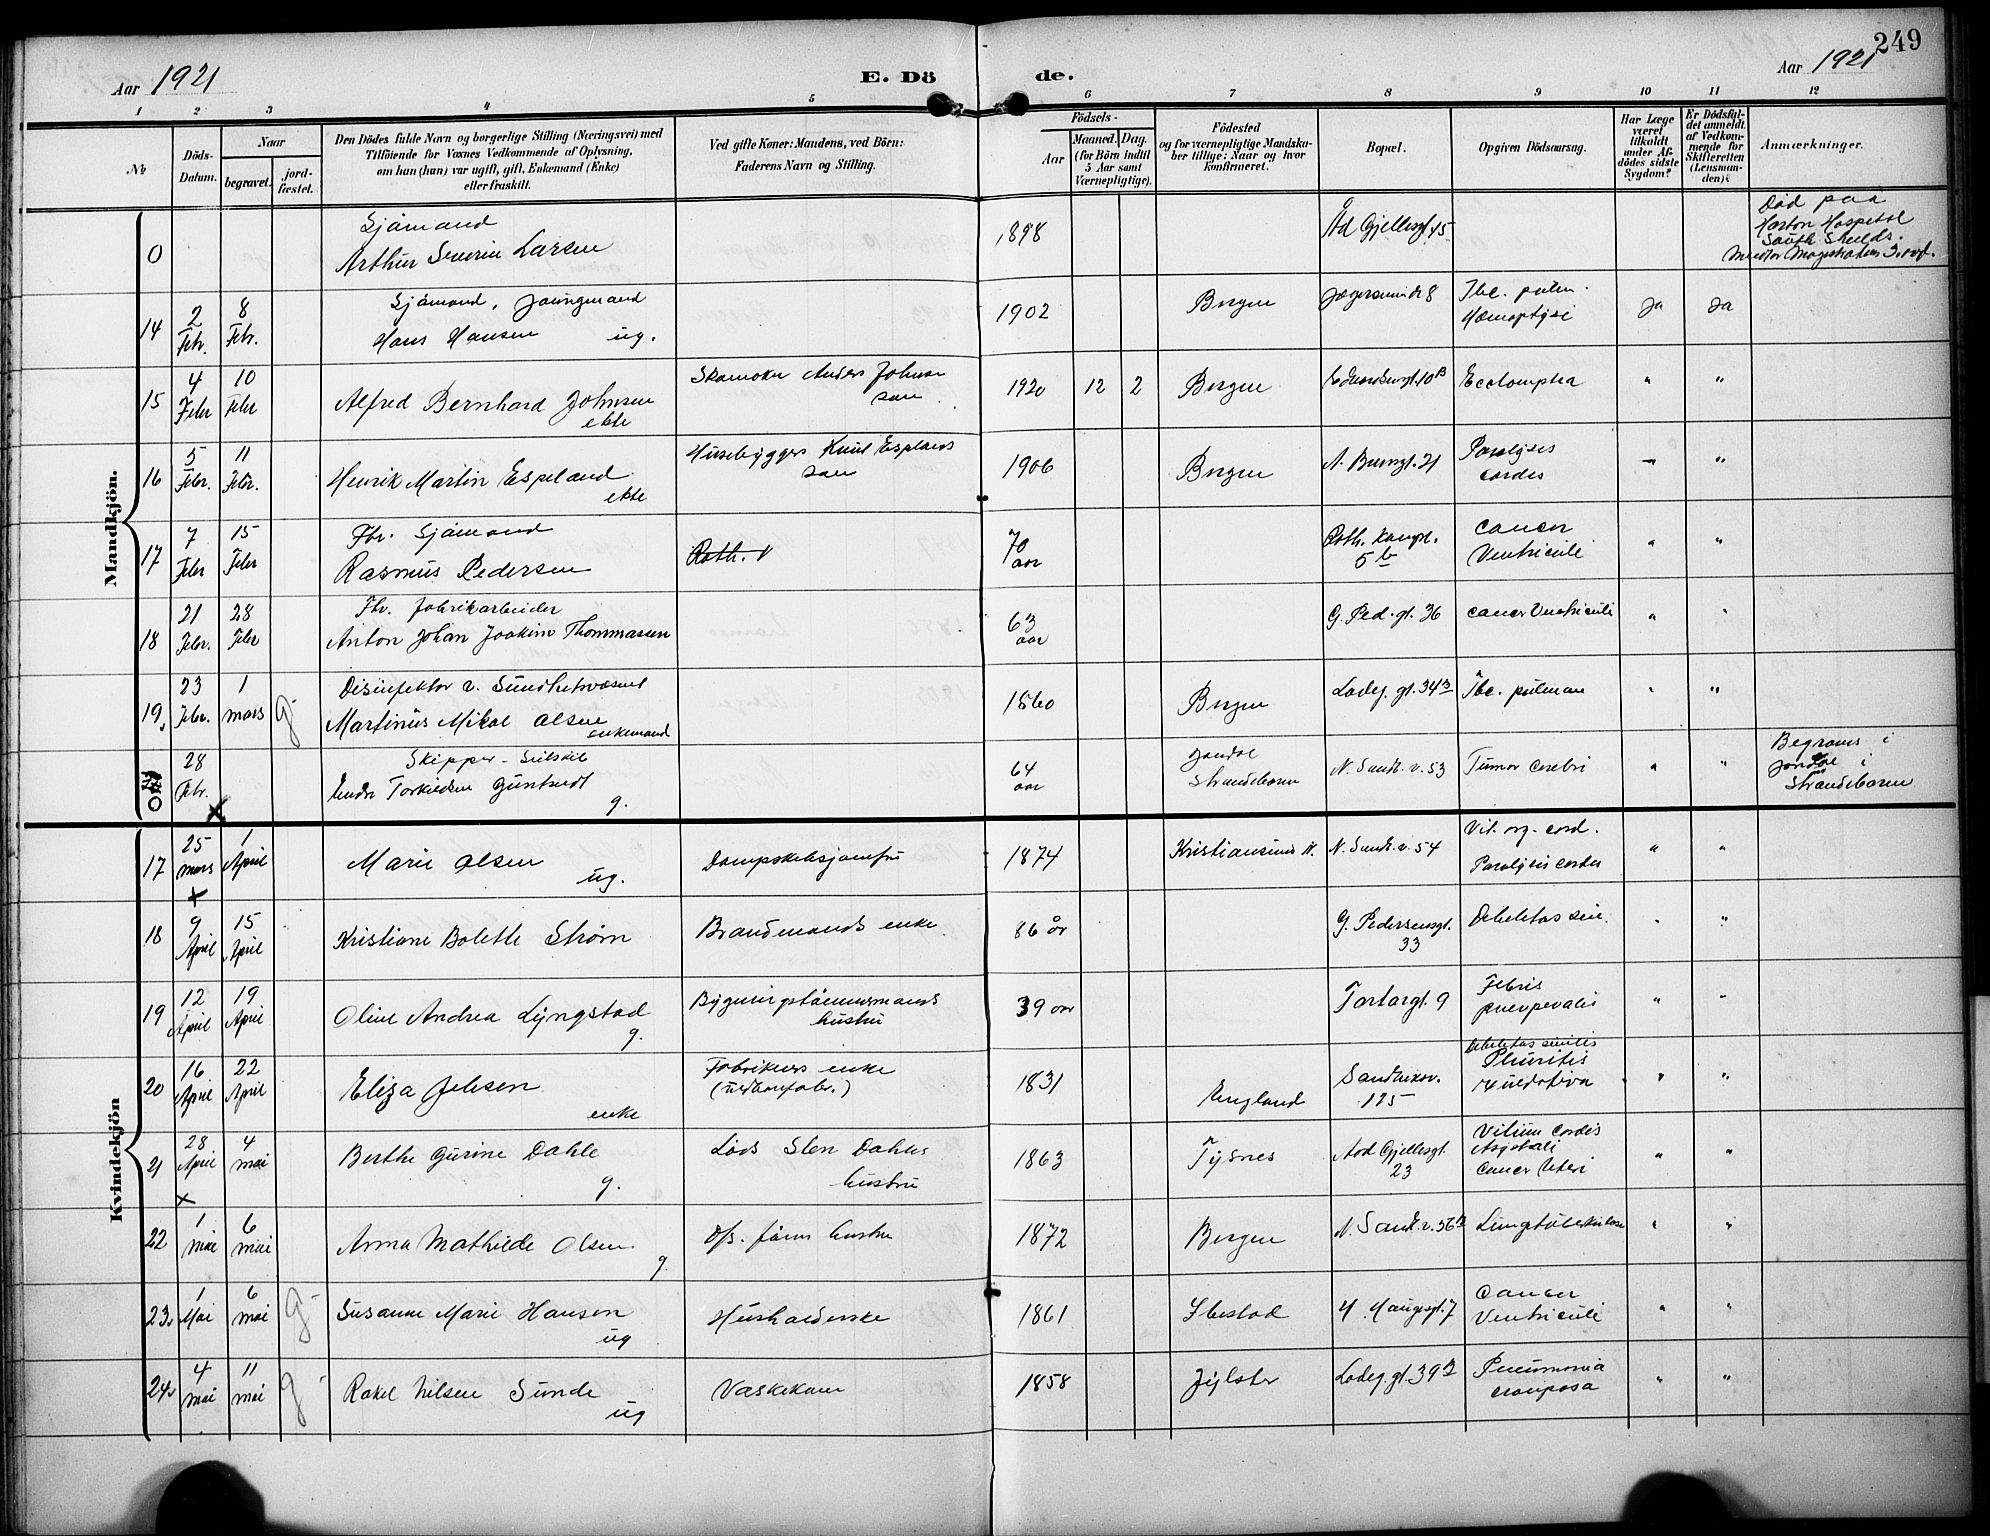 249
Aar 1921
E. Dö de.
Aar 1921
1 2 3 4 5 6 7 8 9 10 11 12
No
Döds-Datum.
Naar
begravet.
jord-fæstet.
Den Dödes fulde Navn og borgerlige Stilling (Næringsvei) med
Tilföiende for Voxnes Vedkommende af Oplysning,
om han (hun) var ugift, gift, Enkemand (Enke)
eller fraskilt.
Ved gifte Koner: Mandens, ved Börn:
Faderens Navn og Stilling.
Födsels-
Aar
Maaned.
Dag.
(for Börn indtil
5 Aar samt
Værnepligtige).
Födested
og for værnepligtige Mandska-
ber tillige: Naar og hvor
konfirmeret.
Bopæl.
Opgiven Dödsaarsag.
Har Læge
været
tilkaldt
under Af-
dödes sidste
Sygdom?
Er Dödsfal-
det anmeldt
af Vedkom-
mende for
Skifteretten
(Lensman-
den)?
Anmærkninger.
Mandkjön.
0 Sjömand
Arthur Severin Larsen 1898 Ad Gjellesgt. 15
Död paa
Hospital
South Shields.
14 2 Febr. 8 Febr. Sjömand, Joungmand
Hans Hansen ug. 1902 Bergen 8 Tbc. pulm.
Hæmoptysi Ja Ja
15 4 Febr 10 Febr Alfred Bernhard Johnsen
ekte Skomaker Anders Johnsen
søn 1920 12 2 Bergen Eclampsia " "
16 5 Febr. 11 Febr. Henrik Martin Espeland
ekte Husebygger Knut Espelands
søn 1906 Bergen N. Brunsgt. 21 Paralysis
cordis "
17 7 Febr 15 Febr Fhv. Sjömand
Rasmus Pedersen 70
aar 5 b Cancer
Ventriculi " "
18 21 Febr. 28 Febr Fhv. fabrikarbeider
Anton Johan Joakim Thommasen 63
aar G. Ped. gt. 36 Cancer Ventriculi " "
19 23 Febr. 1 mars g Disinfektør v. Sundhetsvæsnet
Martinus Mikal Olsen
enkemand 1860 Bergen Ladeg. gt. 34 Tbc. pulman " "
28 Febr. Skipper - Seilskib
Endre Torkildsen
g. 64
aar Jondal
Strandebarm N. Sandv. v. 53 Tumor cerebri " "
Begraves i
Jondal i
Strandebarm
Kvindekjön
17 25 mars 1 April Marie Olsen
ug. Dampskibsjomfru 1874 Kristiansund N. N. Sandv. v. 54 Vit. org. cord.
Paralysis cordis " "
18 9 April 15 April Kristiane Bolette Strøm Brandmands enke 86 år G. Pedersensgt.
33 Debilitas sen. " "
19 12 April 19 April Oline Andrea Lyngstad
g. Bygningstömmermands
hustru 39 aar Tartargt. 9 Febris
puerperalis " "
20 16 April 22 April Eliza Jebsen
enke Fabrikeiers enke 1831 England Sandviksv.
125 Debilitas senilis
Pleuritis " "
21 28 April 4 mai Berthe Gurine Dahle
g. Lods Sten Dahles
hustru 1863 Tysnes Aad Gjellesgt.
23 Vitium Cordis
Asystoli
Cancer Uteri " "
22 1 mai 6 mai Anna Mathilde Olsen
g. hustru 1872 Bergen N. Sandv. v. 56 Lungetuberkulose " "
23 1 Mai 6 mai g Susanne Marie Hansen
ug Husholderske 1861 Ibestad H. Haugesgt. 7 Cancer
Ventriculi " "
24 4 mai 11 mai g Rakel Nilsen Sunde
ug Vaskekone 1858 Jølster Ladeg. gt. 39 Pneumonia
crouposa " "